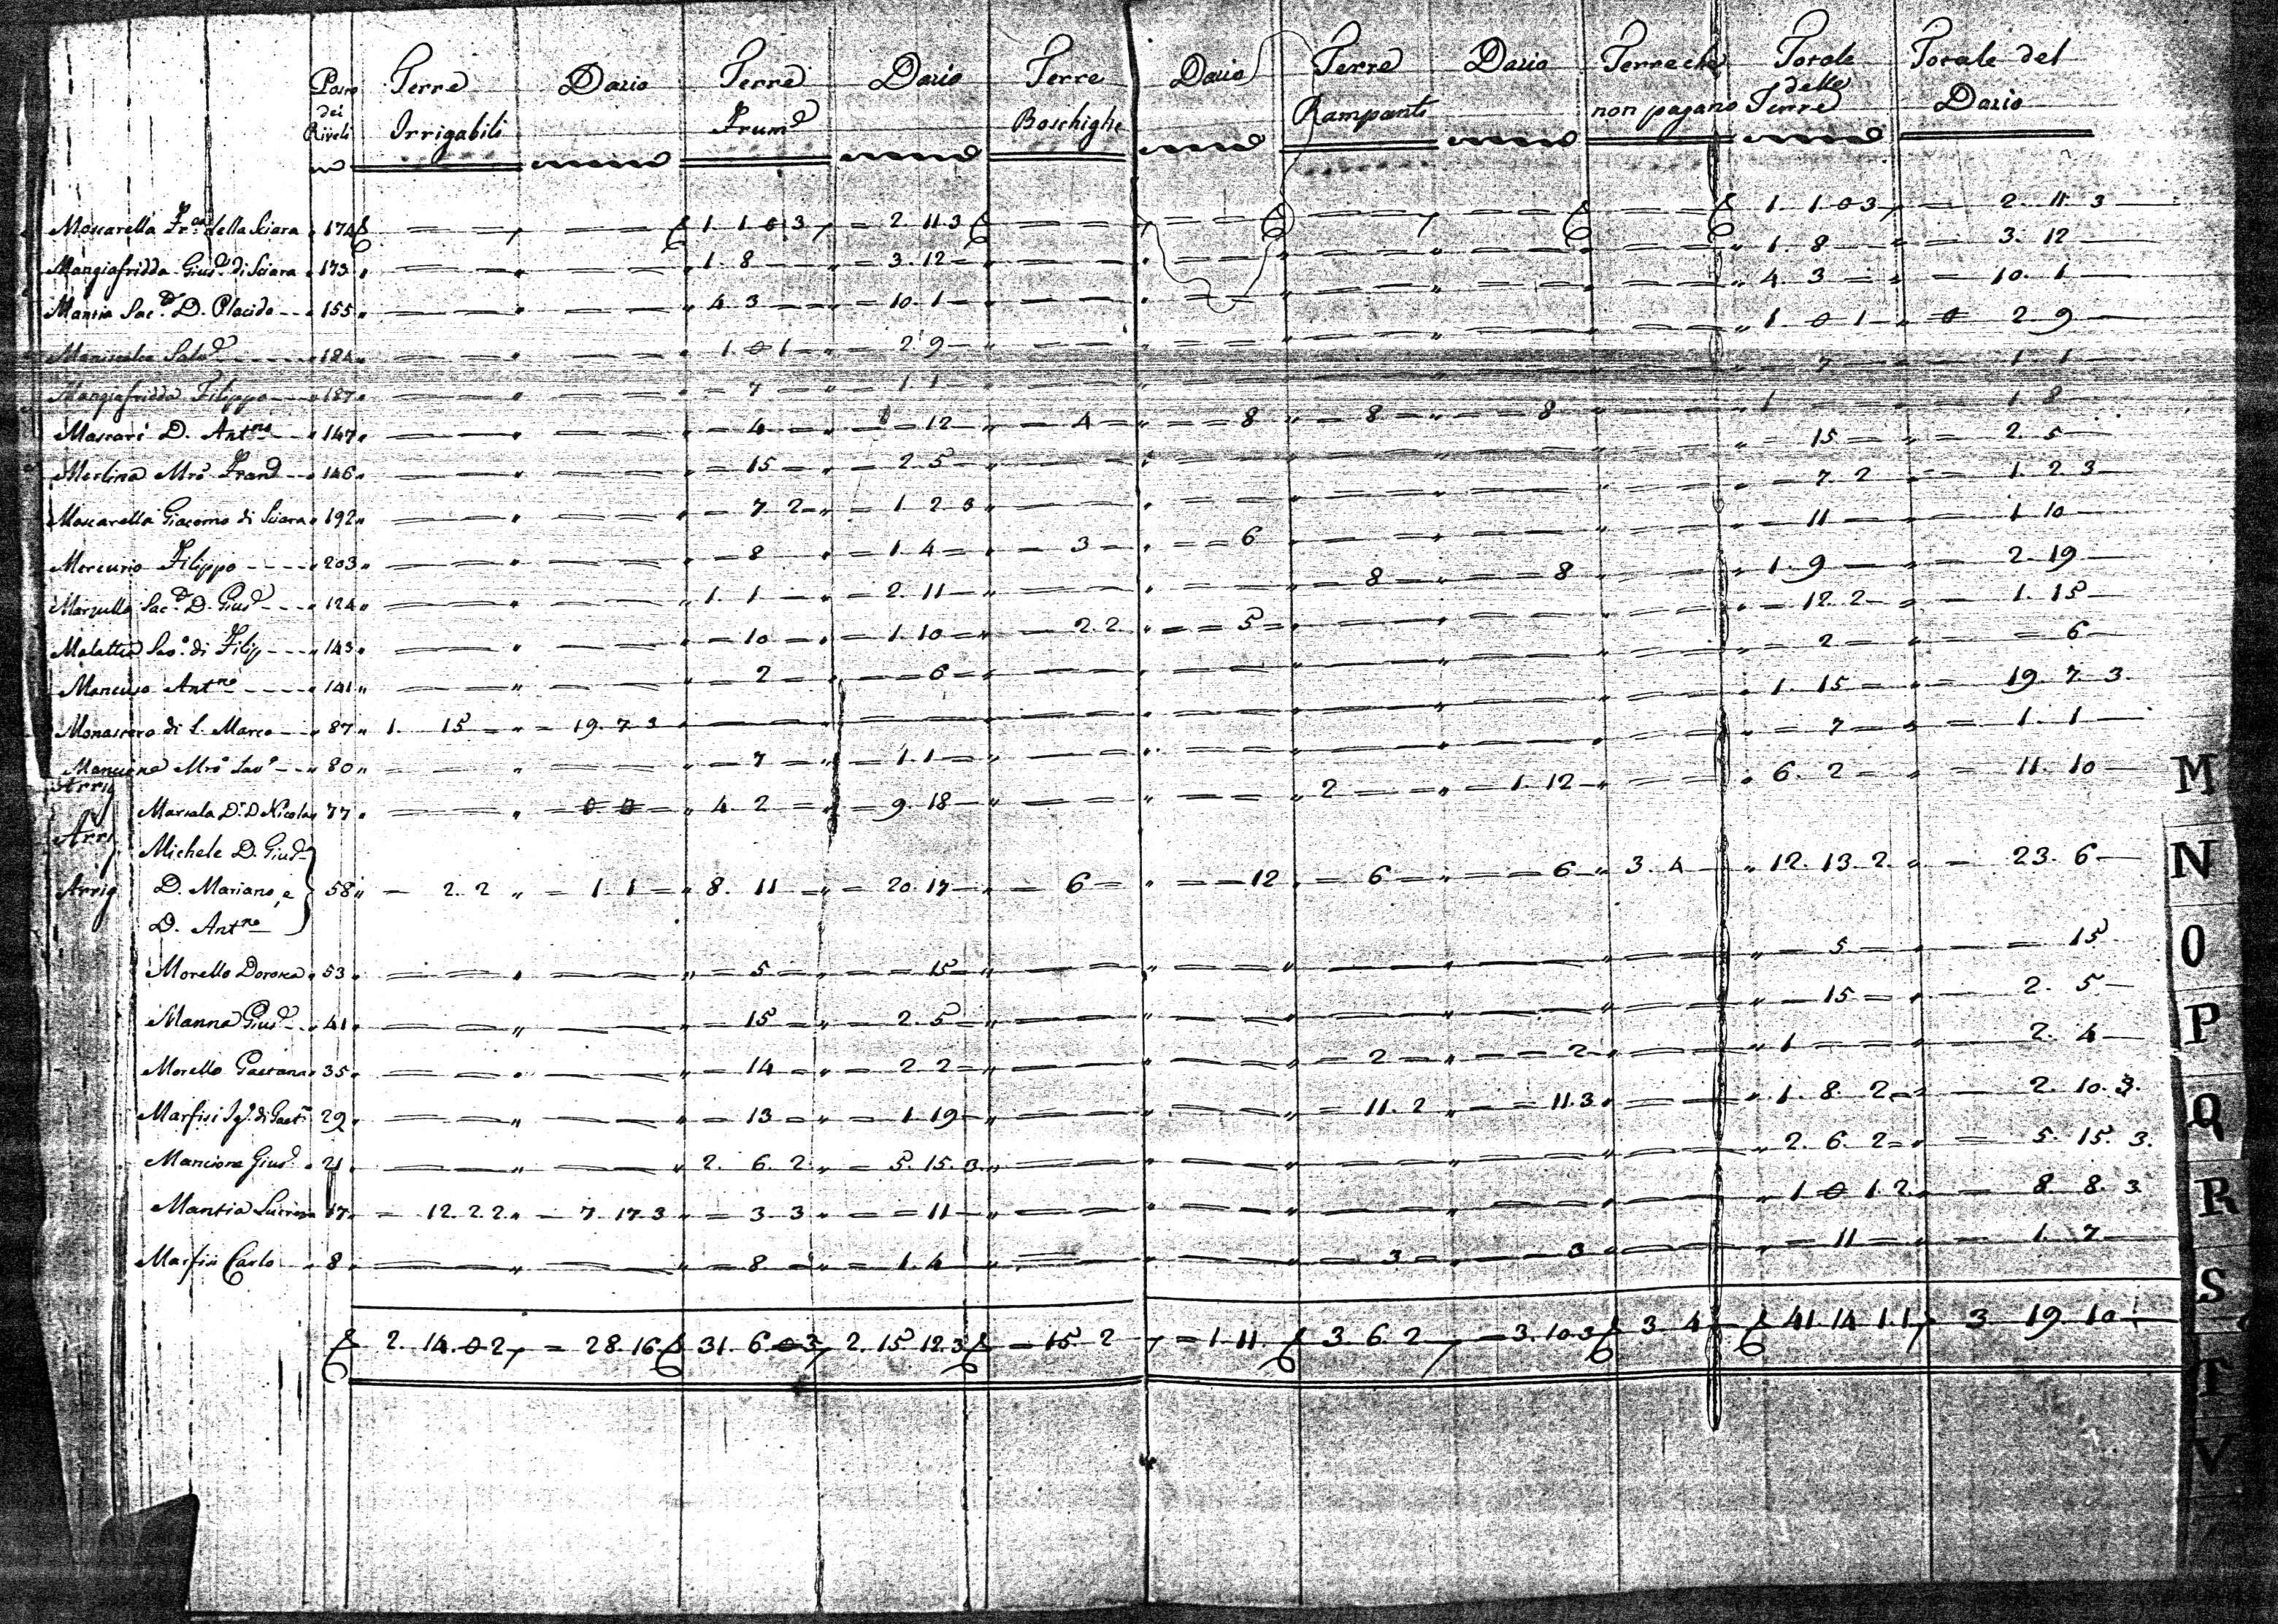 Posto dei Riveli Terre Irrigabili Dazio Terre Frum.e Dazio Terre Boschighe Dazio Terre Rampanti Dazio Terre che non pagano Totale delle Terre Totale del Dazio
Moscarella Fr.co della Sciara 174 — — 1. 1. 0 3 2. 11. 3 — — — — — 1. 1. 0 3 2. 11. 3
Mangiafridda Gius.e di Sciara 173 — — 1. 8 3. 12 — — — — — 1. 8 3. 12
Mantia Sac.e D. Placido 155 — — 4 3 10. 1 — — — — — 4. 3 10. 1
Maniscalco Salv.e 184 — — 1. 0 1 2. 9 — — — — — 1 0 1 2 9
Mangiafridda Filippo 187 — — 7 1. 1 — — — — — 7 1. 1
Mascari D. Ant.no 147 — — 4 12 4 8 8 8 — 1 1 8
Merlina Mro Fran.o 146 — — 15 2. 5 — — — — — 15 2. 5
Moscarella Giacomo di Sciara 192 — — 7 2 1 2 3 — — — — — 7. 2 1. 2 3
Mercurio Filippo 203 — — 8 1. 4 3 6 — — — 11 1 10
Marzullo Sac.e D. Gius.e 124 — — 1. 1 2. 11 — — 8 8 — 1. 9 2. 19
Malattia Sav.o di Filip 143 — — 10 1. 10 2. 2 5 — — — 12. 2 1. 15
Mancuso Ant.no 141 — — 2 6 — — — — — 2 6
Monastero di S. Marco 87 1. 15 19. 7 3 — — — — — — — 1. 15 19. 7 3
Mancione Mro Sav.o 80 — — 7 1. 1 — — — — — 7 1. 1
Arrig
Marsala D.r D. Nicola 77 — 0 0 4. 2 9. 18 — — 2 1. 12 — 6. 2 11. 10
Arrig Michele D. Gius.e
Arrig D. Mariano, e 58 2. 2 1. 1 8. 11 20. 17 6 12 6 6 3. 4 12. 13. 2 23. 6
D. Ant.no
Morello Dorotea 53 — — 5 15 — — — — — 5 15
Manna Gius.e 41 — — 15 2. 5 — — — — — 15 2. 5
Morello Gaetana 35 — — 14 2 2 — — 2 2 — 1 2. 4
Marfisi di Gaet.no 29 — — 13 1. 19 — — 11. 2 11. 3 — 1. 8. 2 2. 10. 3
Mancione Gius.e 21 — — 2. 6. 2 5. 15. 3 — — — — — 2. 6. 2 5. 15. 3
Mantia 17 12. 2 2 7. 17. 3 3 3 11 — — — — — 1 0 1. 2 8. 8. 3
Marfisi Carlo 8 — — 8 1. 4 — — 3 3 — 11 1. 7
2. 14. 0 2 28. 16 31. 6 0 3 2. 15 12. 3 15. 2 1. 11 3 6 2 3. 10. 3 3 4 41 14 1. 1 3 19 10
M
N
O
P
Q
R
S
T
V